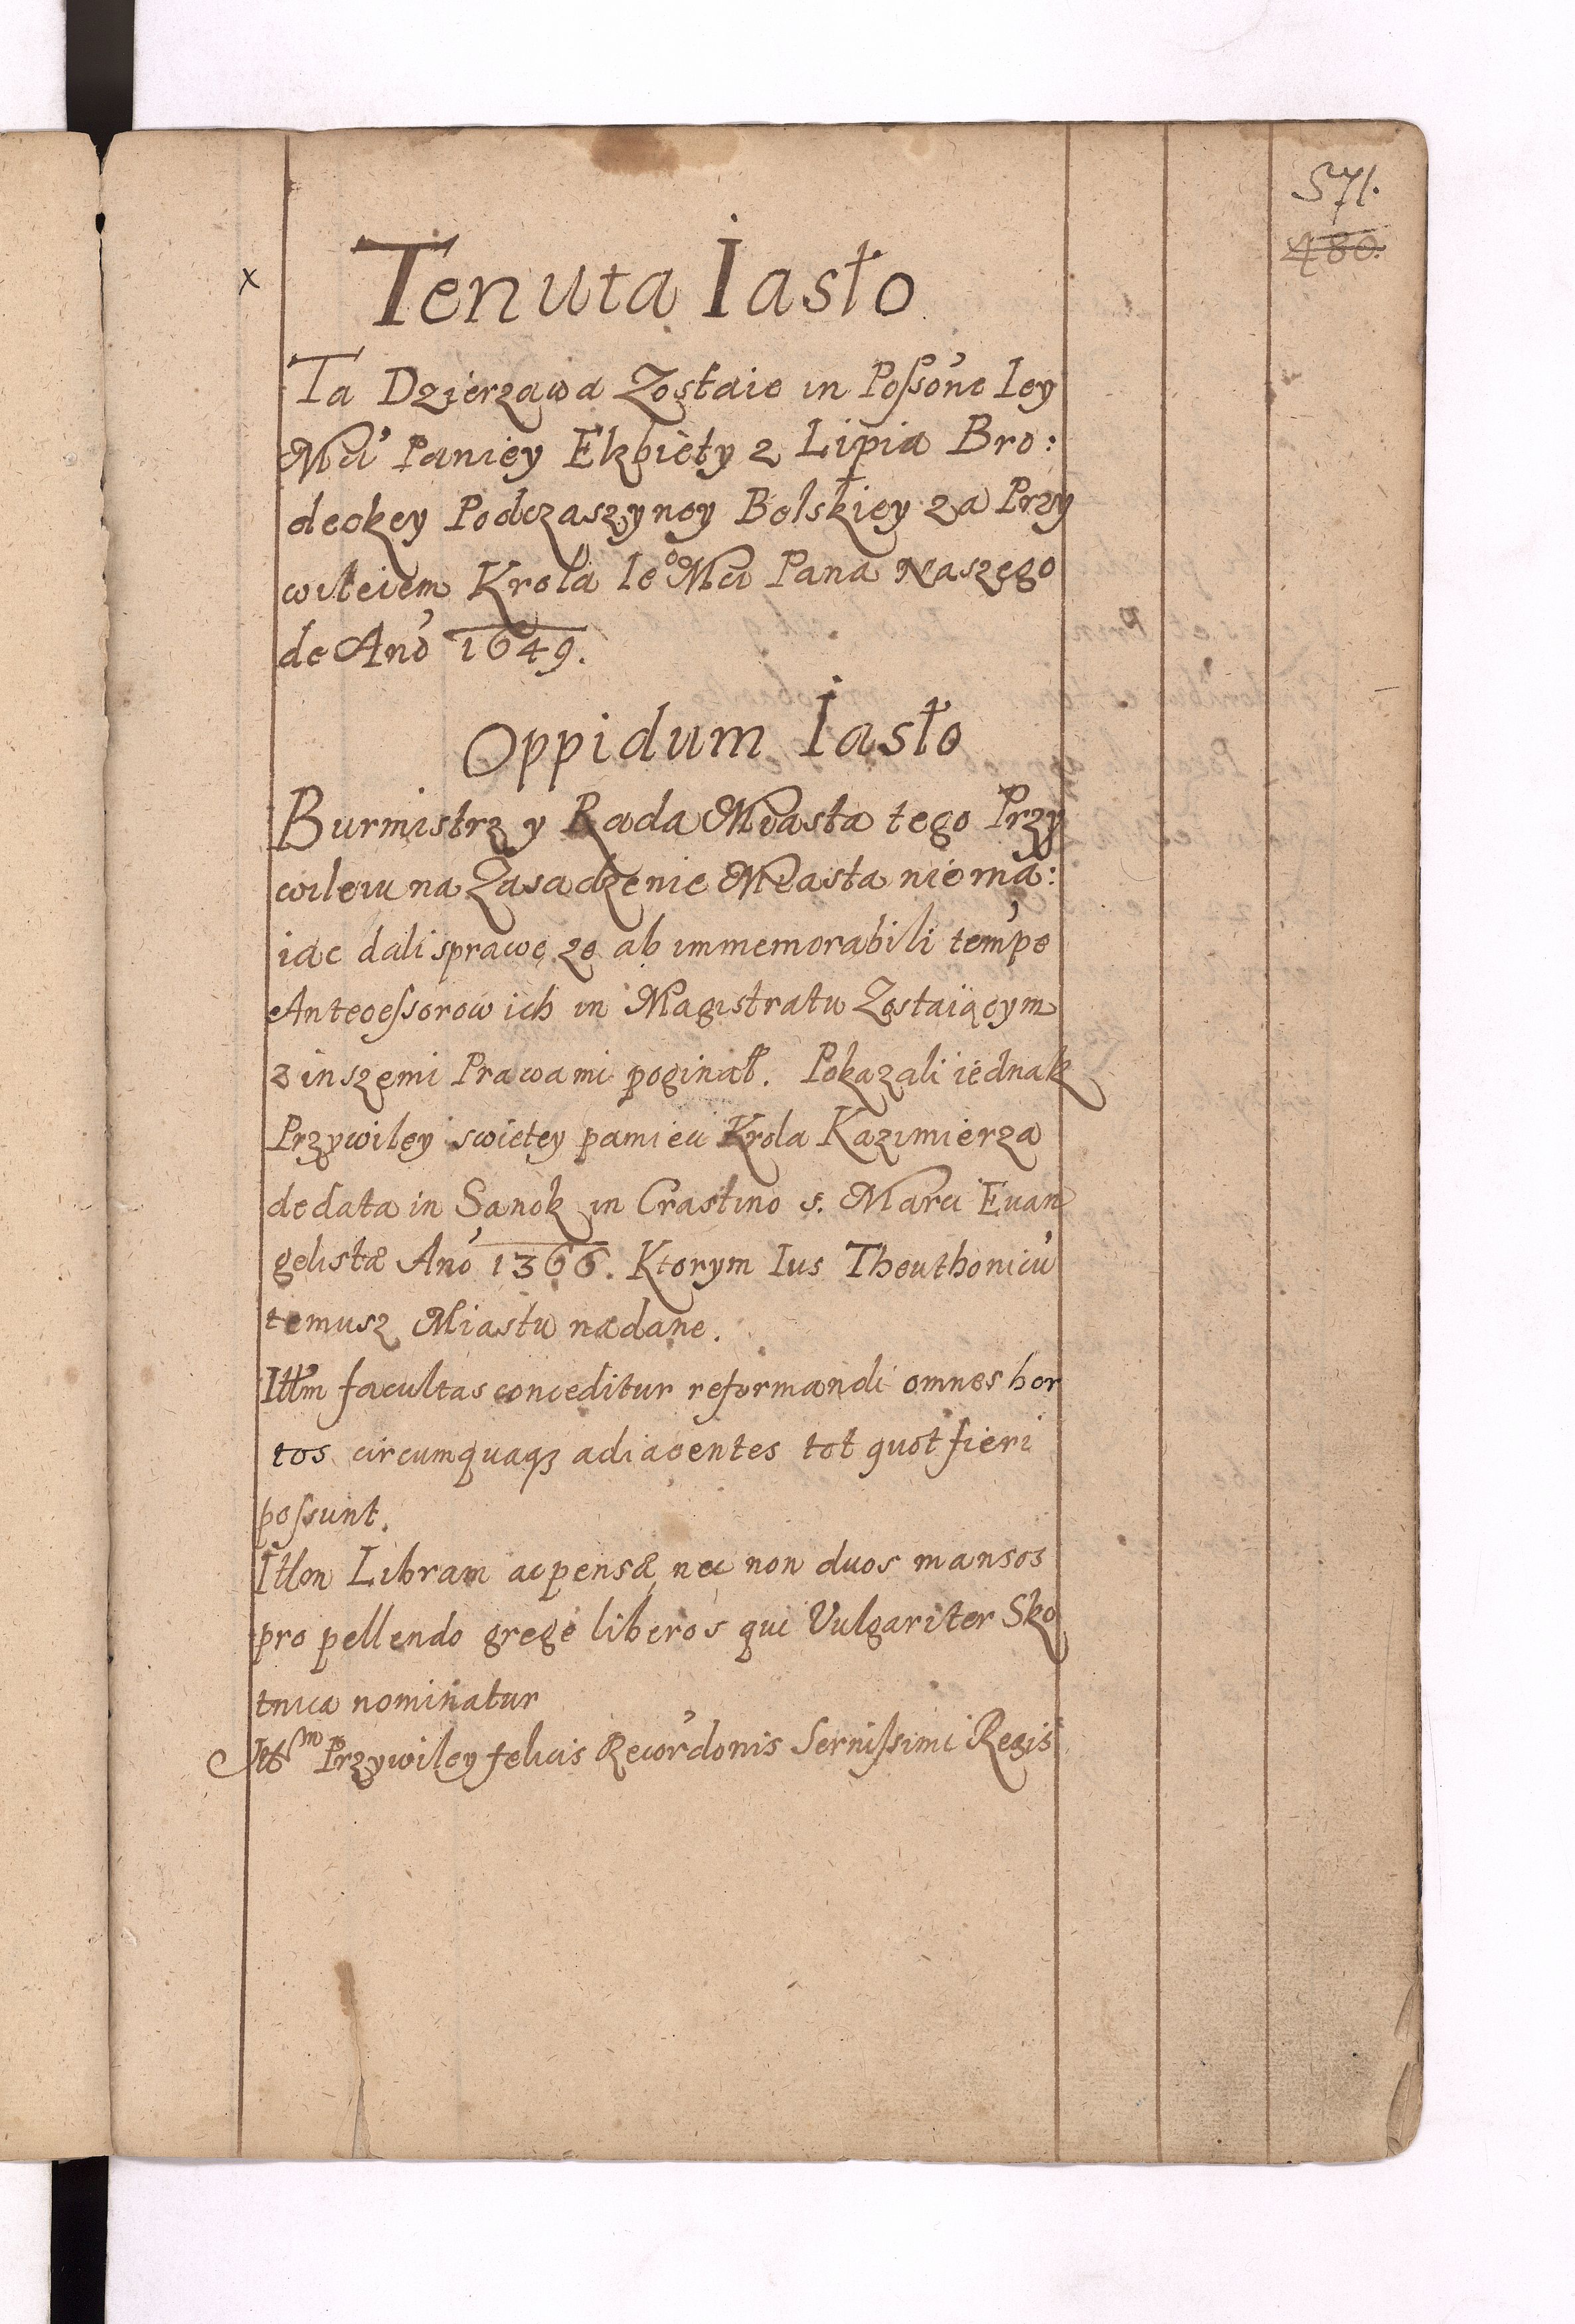 571.
480.
x
Tenuta Iasło
Ta Dzierzawa Zostaie in Possone Iey
Mci Paniey Elzbiety z Lipia Bro:
deckey Podczaszyney Belskiey za Przy
wileiem Krola Ieo Mci Pana Naszego
de Ano 1649.
Oppidum Iasło
Burmistrz y Rada Miasta tego Przy
wileiu na Zasadzenie Miasta niema:
iąc dali sprawę ze ab immemorabili tempe
Antecessorow ich in Magistratu Zostaiącym
z inszemi Prawami poginął. Pokazali iednak
Przywiley swietey pamieci Krola Kazimierza
de data in Sanok in Crastino s. Marci Euan
gelistæ Ano 1366. Ktorym Ius Theuthonicu
temusz Miastu nadane.
Ittm facultas conceditur reformandi omnes hor
tos circumquaqz adiacentes tot quot fieri
possunt.
Ittm Libram ac pensæ nec non duos mansos
pro pellendo grege liberos qui Vulgariter Sko
tnica nominatur
Ittm Przywiley felicis Recordonis Sernissimi Regis